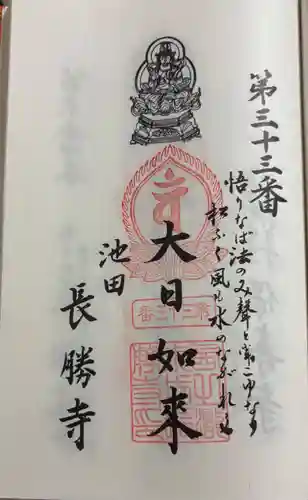 第三十三番
悟りなば法のみ聲と常にゆなり
松ふく風も水のながれも
大日如来
池田
長勝寺